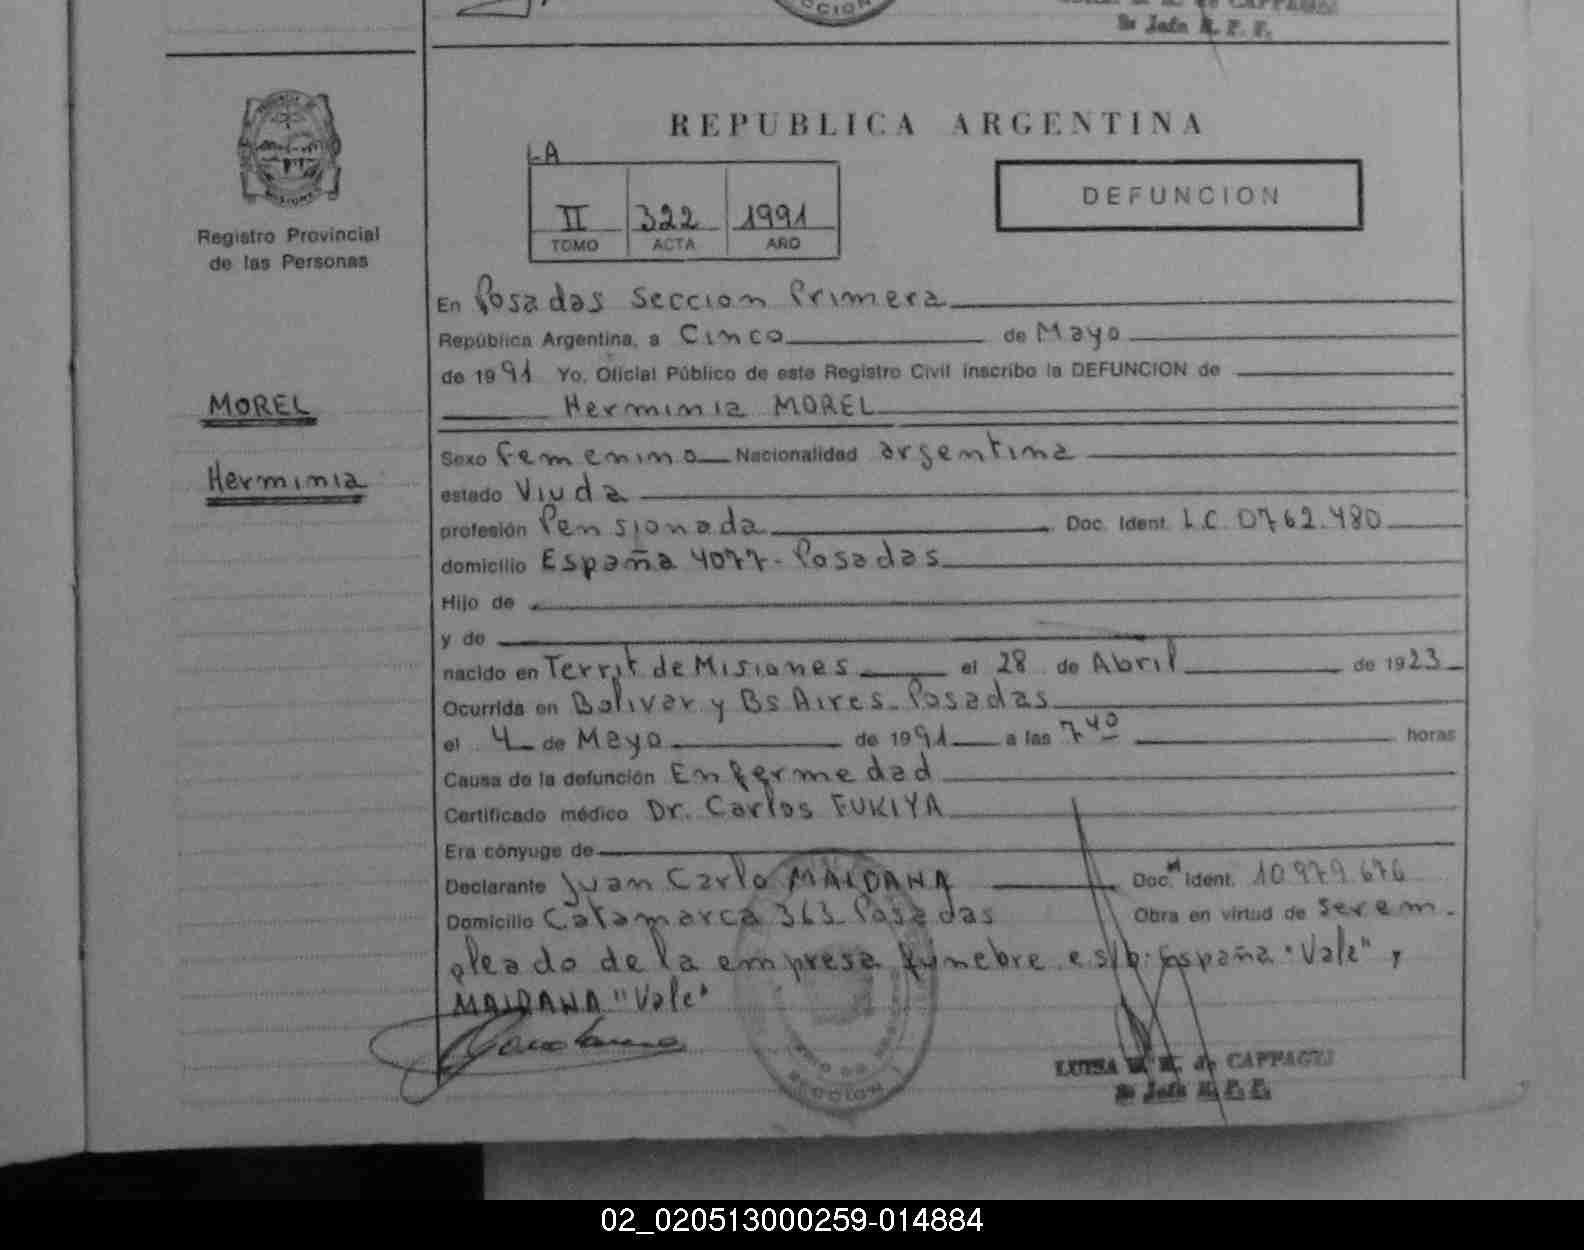 CCION
de CAPPAGLI
Sb Jefa R. P. P.
REPUBLICA ARGENTINA
LA
II 322 1991
TOMO ACTA AÑO
DEFUNCION
Registro Provincial
de las Personas
MOREL
Herminia
En Posadas Seccion Primera
República Argentina, a Cinco de Mayo
de 1991 Yo, Oficial Público de este Registro Civil inscribo la DEFUNCION de
Herminia MOREL
Sexo femenino Nacionalidad argentina
estado Viuda
profesión Pensionada Doc. Ident. L.C. 0762.480
domicilio España 4077- Posadas
Hijo de
y de
nacido en Territ. de Misiones el 28 de Abril de 1923
Ocurrida en Bolivar y Bs Aires - Posadas
el 4 de Mayo de 1991 a las 7 40 horas
Causa de la defunción Enfermedad
Certificado médico Dr. Carlos FUKIYA
Era cónyuge de
Declarante Juan Carlo MALDANA Doc. Ident. 10.979.676
Domicilio Catamarca 363- Posadas Obra en virtud de ser em-
pleado de la empresa funebre. e s/b: España "Vale" y
MAIDANA "Vale"
SECCION
LUISA de CAPPAGLI
Sb Jefa R. P. P.
02_020513000259-014884